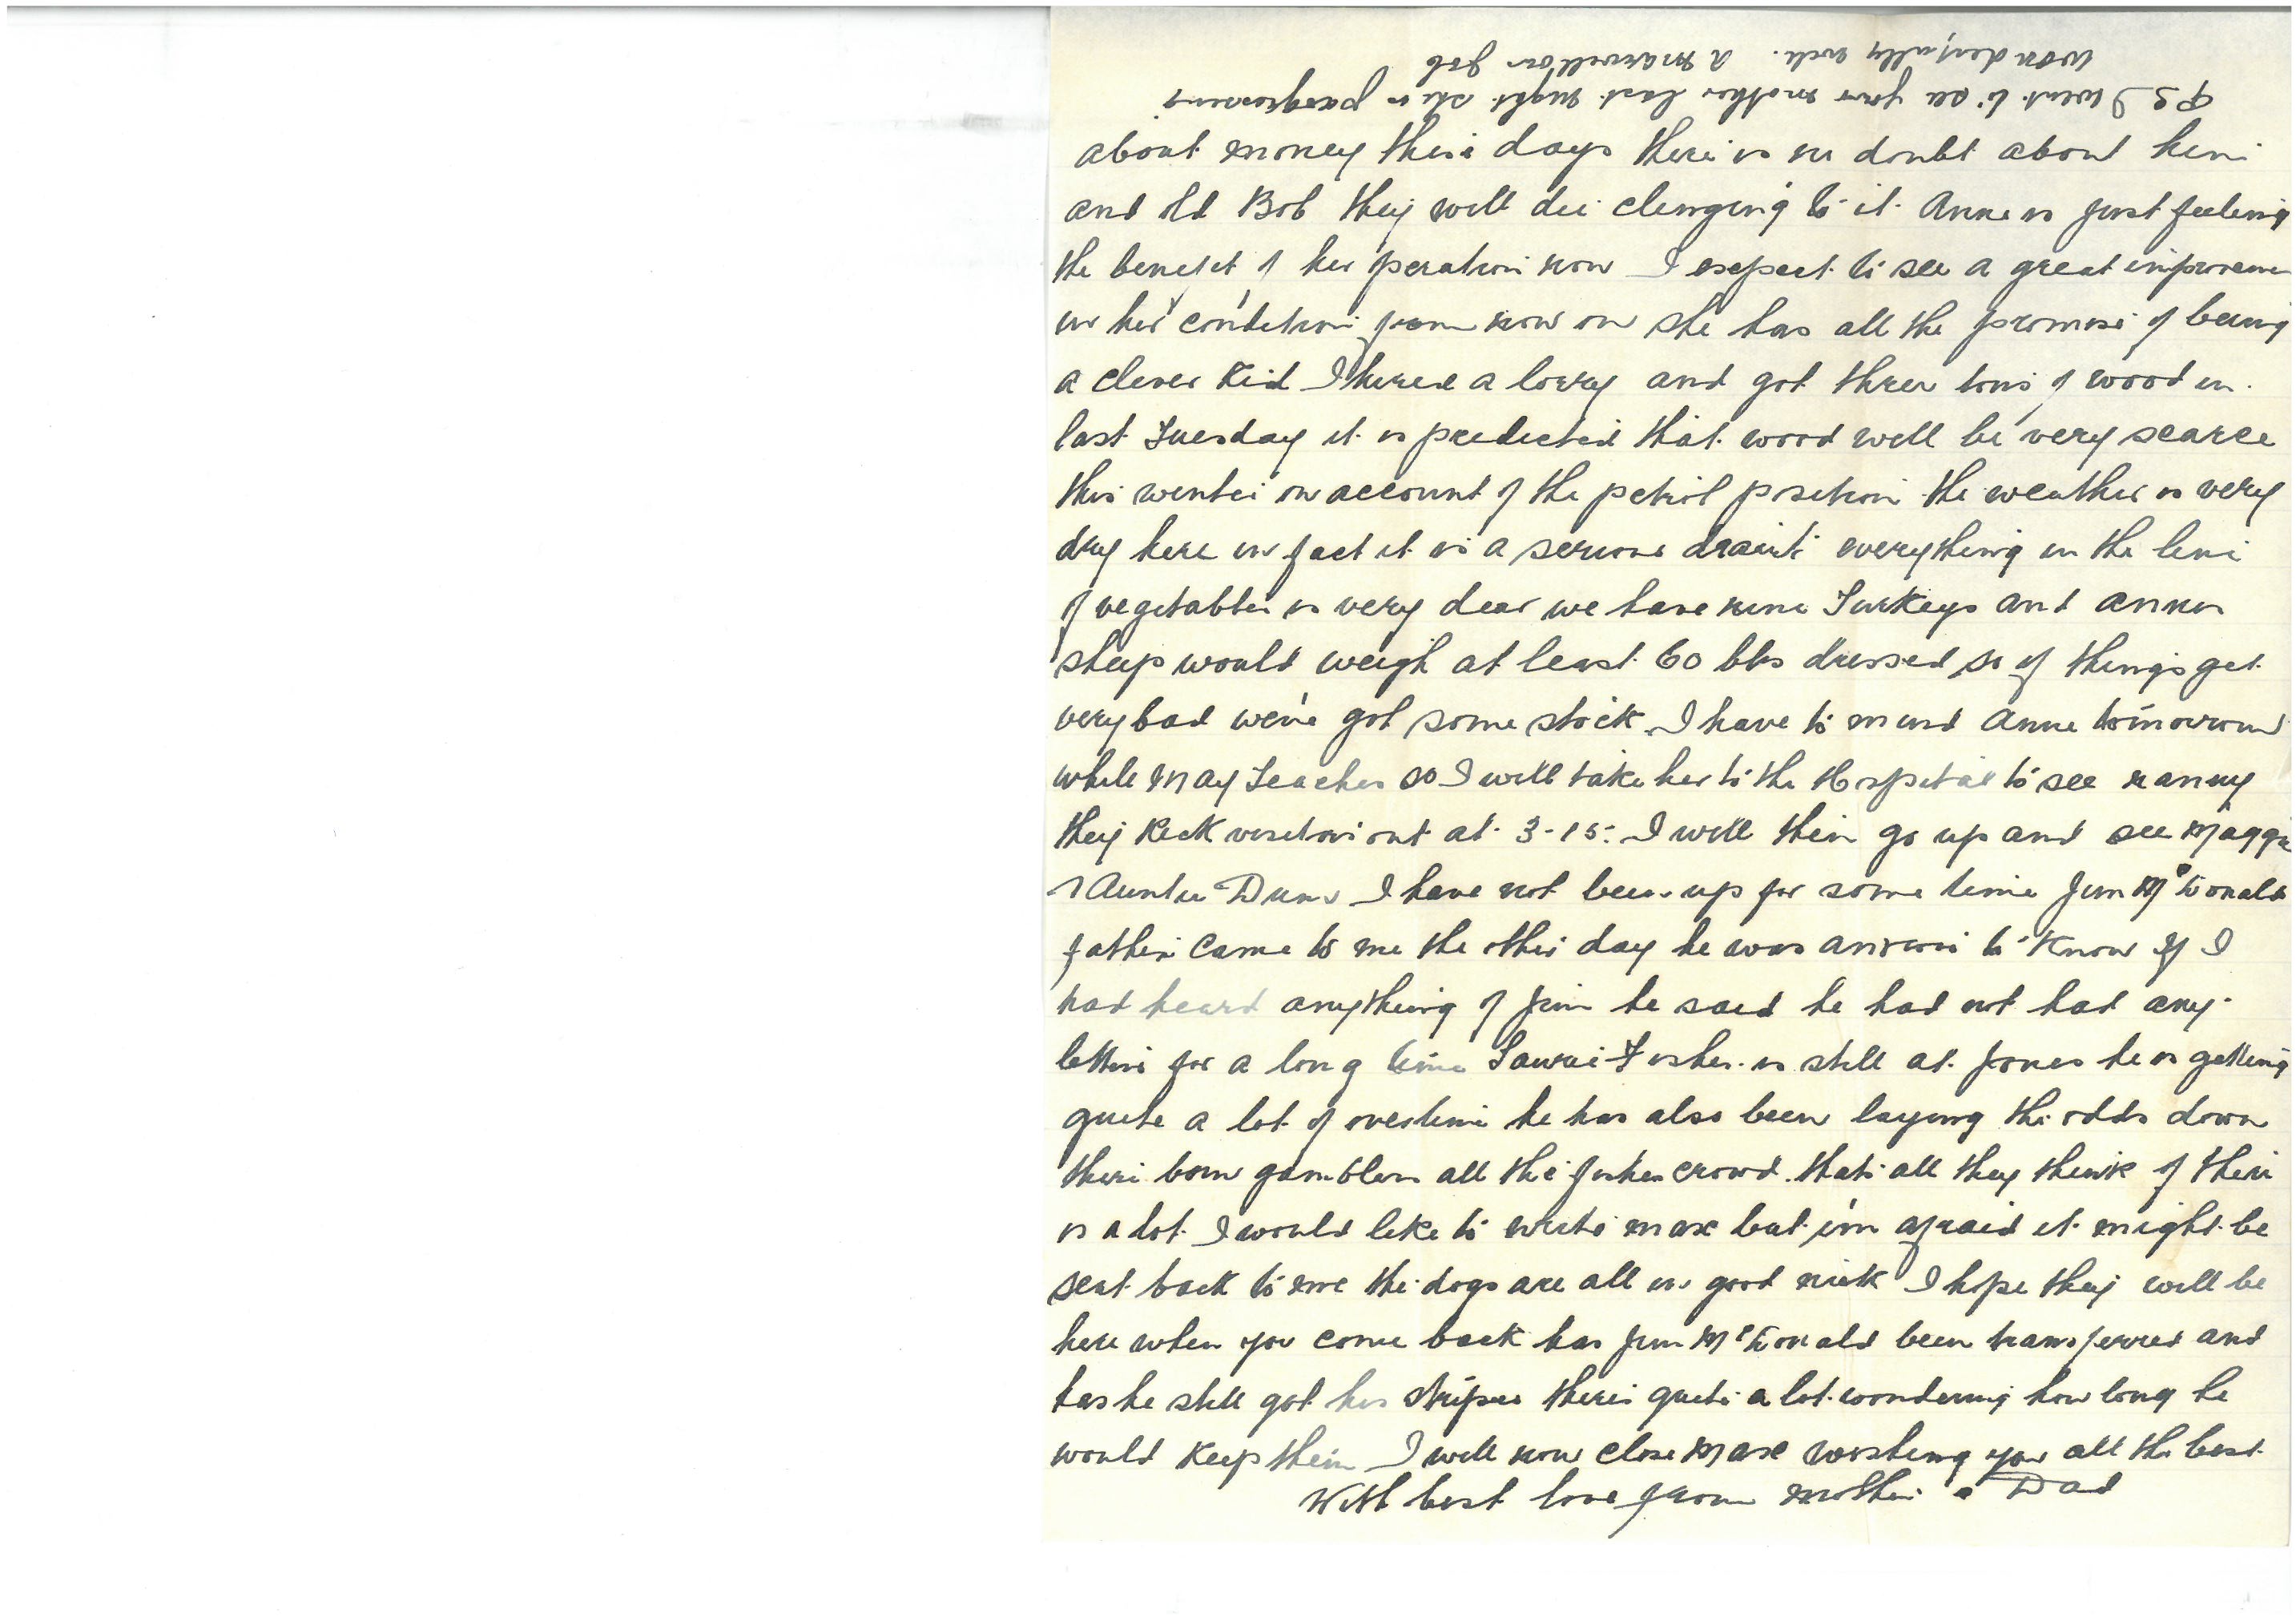 PS I went to see your mother last night she is progressing
wonderfully well. a marvellous job
about money these days there is no doubt about him
and old Bob they will die clinging to it. Anne is just feeling
the benefit of her operation now I expect to see a great improvemen
in her condition from now on she has all the promise of being
a clever kid I hired a lorry and got three tons of wood in.
last Tuesday it is predicted that wood will be very scarce
this winter on account of the petrol position the weather is very
dry here in fact it is a serious everything in the line
of vegetables is very dear we have nine Turkeys and annes
sheep would weigh at least 60 lbs dressed so if things get
very bad we've got some stock. I have to mind Anne tomorrow
while May teaches so I will take her to the Hospital to see nanny
they kick visitors out at 3-15. I will then go up and see Maggie
& Auntie I have not been up for some time Jim McDonalds
father came to me the other day he was anxious to know if I
had heard anything of Jim he said he had not had any
letters for a long time Laurie Fisher is still at Jones he is getting
quite a lot of overtime he has also been laying the odds down
there born gamblers all the fisher crowd. thats all they think of there
is a lot I would like to write max but i'm afraid it might be
sent back to me the dogs are all in good nick I hope they will be
here when you come back has Jim McDonald been transferred and
has he still got his stripes there's quite a lot wondering how long he
would keep them I will now close Max wishing you all the best
With best love from mother & Dad